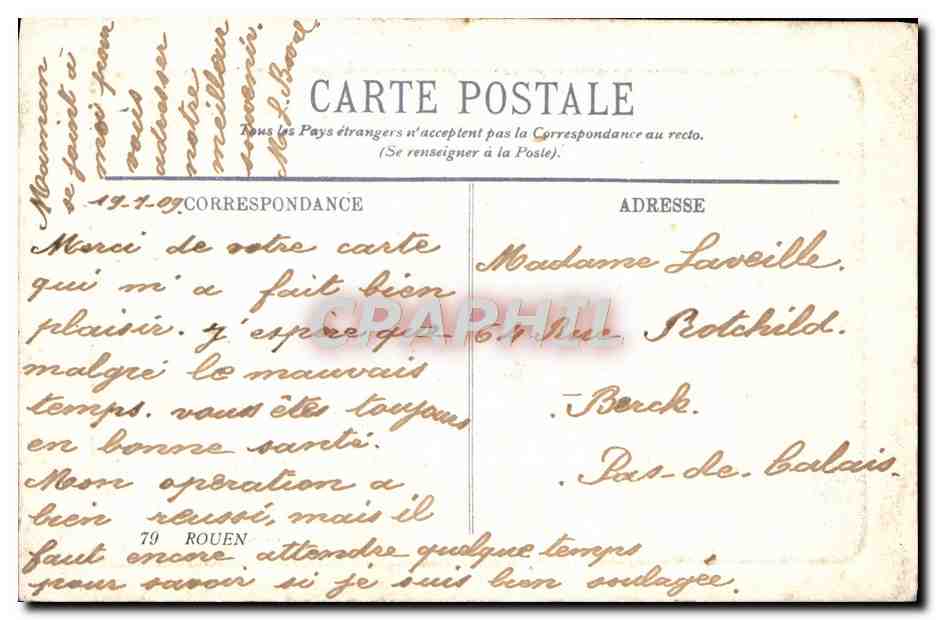 CARTE POSTALE
Tous les Pays étrangers n'acceptent pas la Correspondance au recto.
(Se renseigner à la Poste).
CORRESPONDANCE
ADRESSE
19-1-09
Merci de votre carte
qui m'a fait bien
plaisir. j'espère que
malgré le mauvais
temps. vous êtes toujours
en bonne santé.
Mon opération a
bien reussi, mais il
faut encore attendre quelque temps
pour savoir si je suis bien soulagée.
Maman
se joint à
moi pour
vous
adresser
notre
meilleur
souvenir.
M. L.
Madame Laveille.
Rue Rotchild.
Berck.
Pas-de-Calais.
79 ROUEN
CPAPHIL